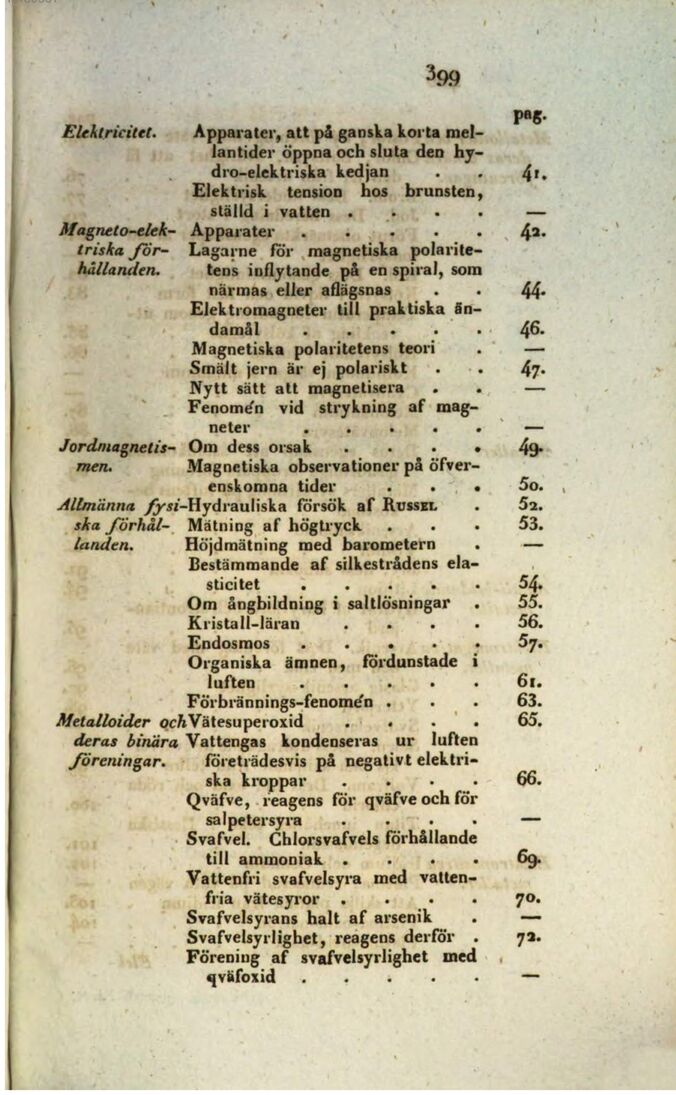 399
pag.
Elektricitet. Apparater, att på ganska korta mel-
lantider öppna och sluta den hy-
dro-elektriska kedjan . . 41.
Elektrisk tension hos brunsten,
ställd i vatten . . . . —
Magneto-elek- Apparater . . . . . 42.
triska för- Lagarne för magnetiska polarite-
hållanden. tens inflytande på en spiral, som
närmas eller aflägsnas . . 44.
Elektromagneter till praktiska än-
damål . . . . . 46.
Magnetiska polaritetens teori . —
Smält jern är ej polariskt . . 47.
Nytt sätt att magnetisera . . —
Fenomén vid strykning af mag-
neter . . . . . —
Jordmagnetis- Om dess orsak . . . . 49.
men. Magnetiska observationer på öfver-
enskomna tider . . . 50.
Allmänna fysi- Hydrauliska försök af Russel . 52.
ska förhål- Mätning af högtryck . . . 53.
landen. Höjdmätning med barometern . —
Bestämmande af silkestrådens ela-
sticitet . . . . . 54.
Om ångbildning i saltlösningar . 55.
Kristall-läran . . . . 56.
Endosmos . . . . . 57.
Organiska ämnen, fördunstade i
luften . . . . . 61.
Förbrännings-fenomén . . . 63.
Metalloider och Vätesuperoxid . . . . 65.
deras binära Vattengas kondenseras ur luften
föreningar. företrädesvis på negativt elektri-
ska kroppar . . . . 66.
Qväfve, reagens för qväfve och för
salpetersyra . . . . —
Svafvel. Chlorsvafvels förhållande
till ammoniak . . . . 69.
Vattenfri svafvelsyra med vatten-
fria vätesyror . . . . 70.
Svafvelsyrans halt af arsenik . —
Svafvelsyrlighet, reagens derför . 72.
Förening af svafvelsyrlighet med
qväfoxid . . . . . —